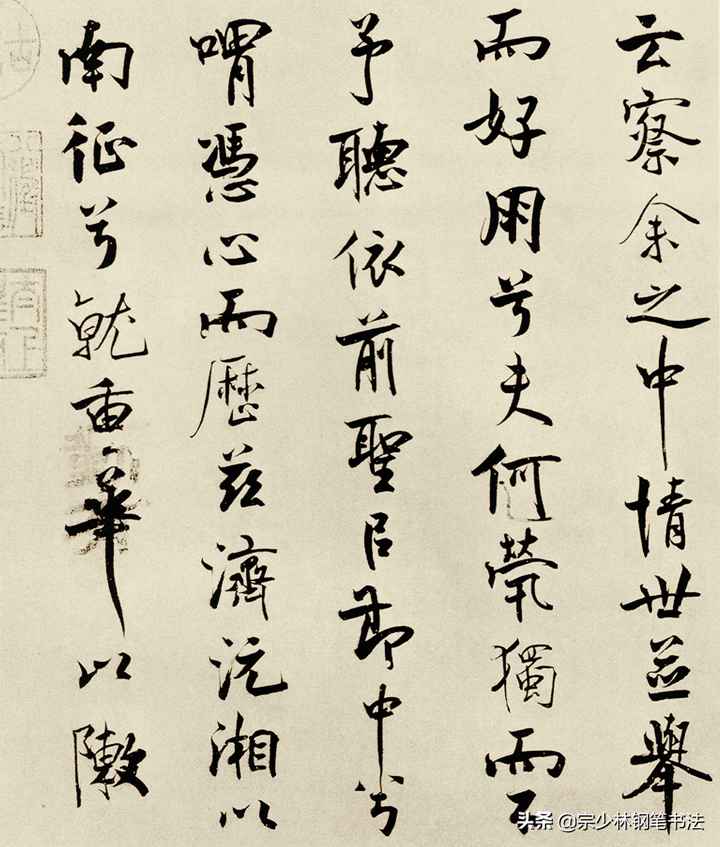 云察余之中情世並舉
而好朋兮夫何煢獨而不
予聽依前聖㠯節中兮
喟憑心而歷茲濟沅湘以
南征兮就重華以敶
头条 @宗少林钢笔书法